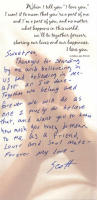 When I tell you "I love you,"
I want it to mean that you're a part of me
and I'm a part of you, and no matter
what happens in this world
we'll be together forever,
sharing our love and our happiness.
I love you.
Sweetie,
Thanks for standing
by me and believing in
us and believing in
me. I love you
Together we belong and
forever
you will be as
one I much to believe
that, and want you to know
how much you truly mean
to me, as a Friend,
Lover and Soul mate.
Forever my love -
Scott